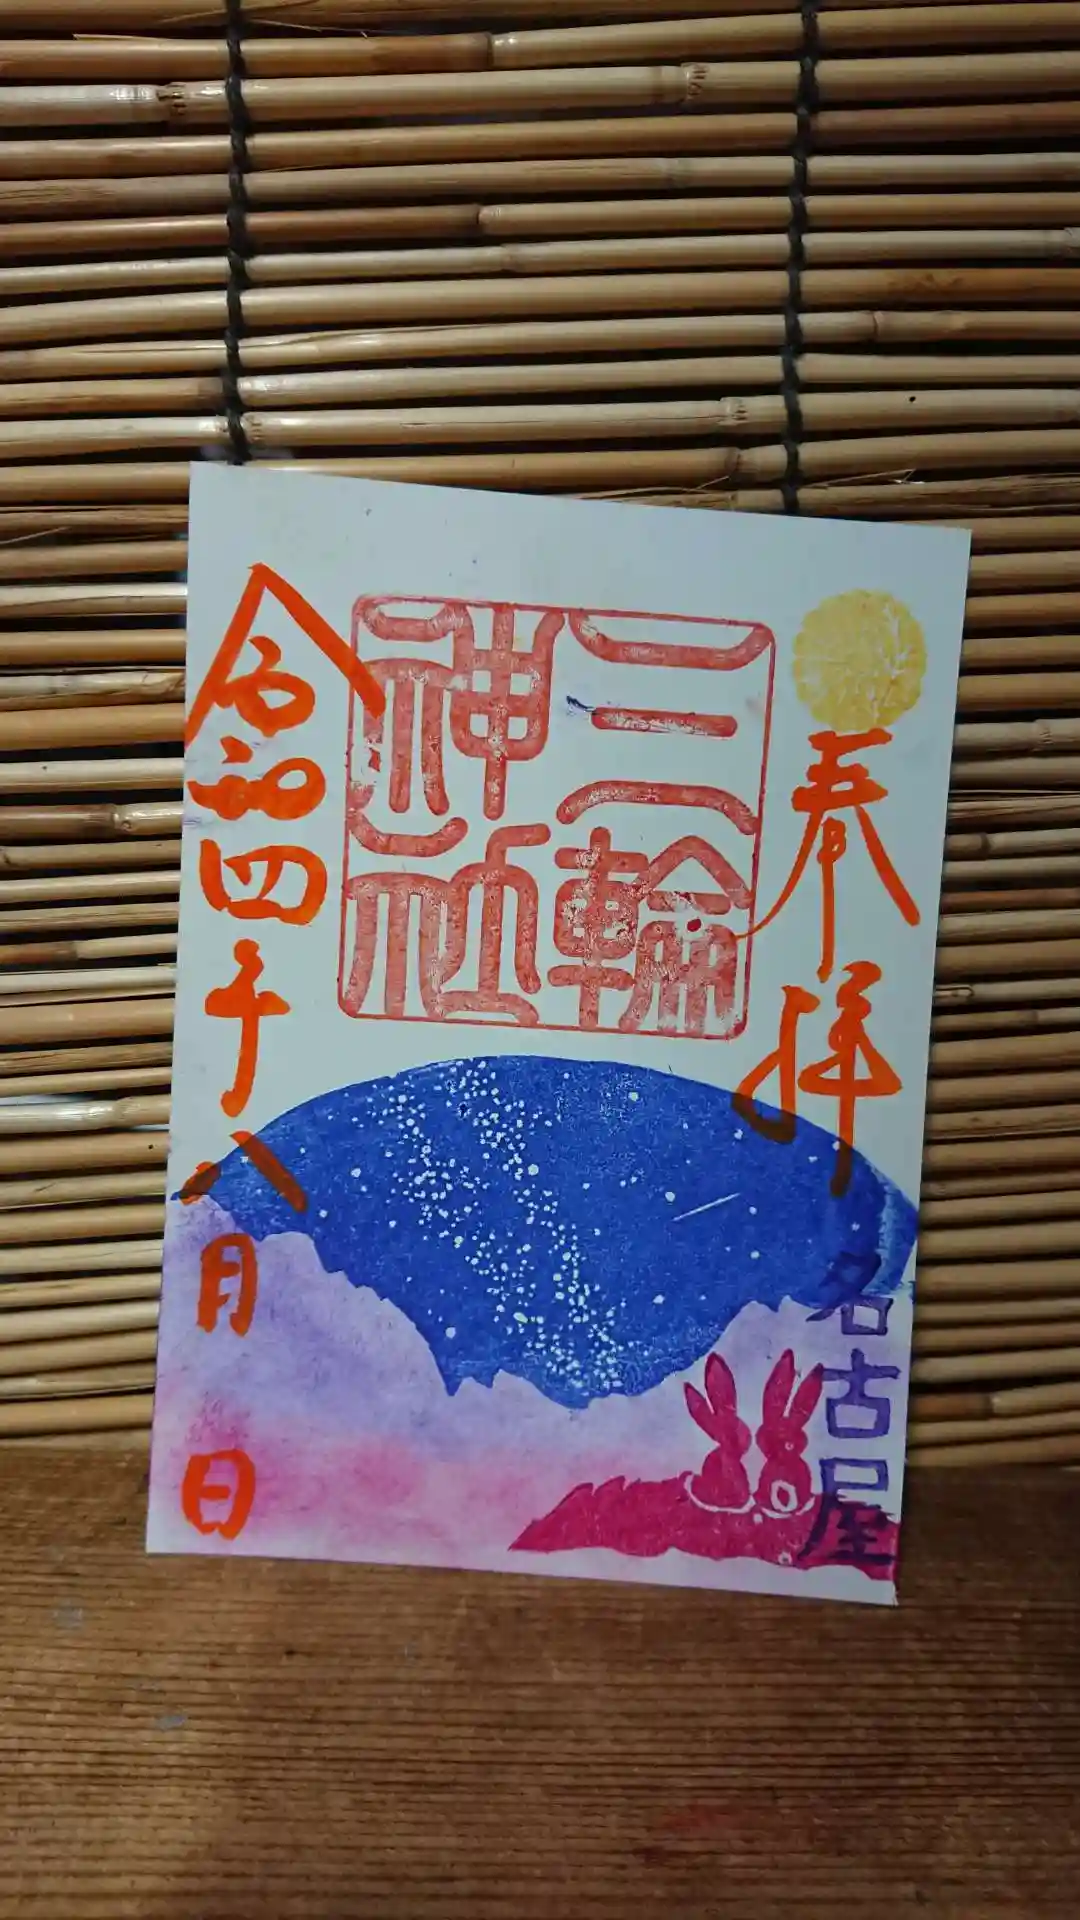 奉拝
名古屋
三輪
神社
令和四年八月 日